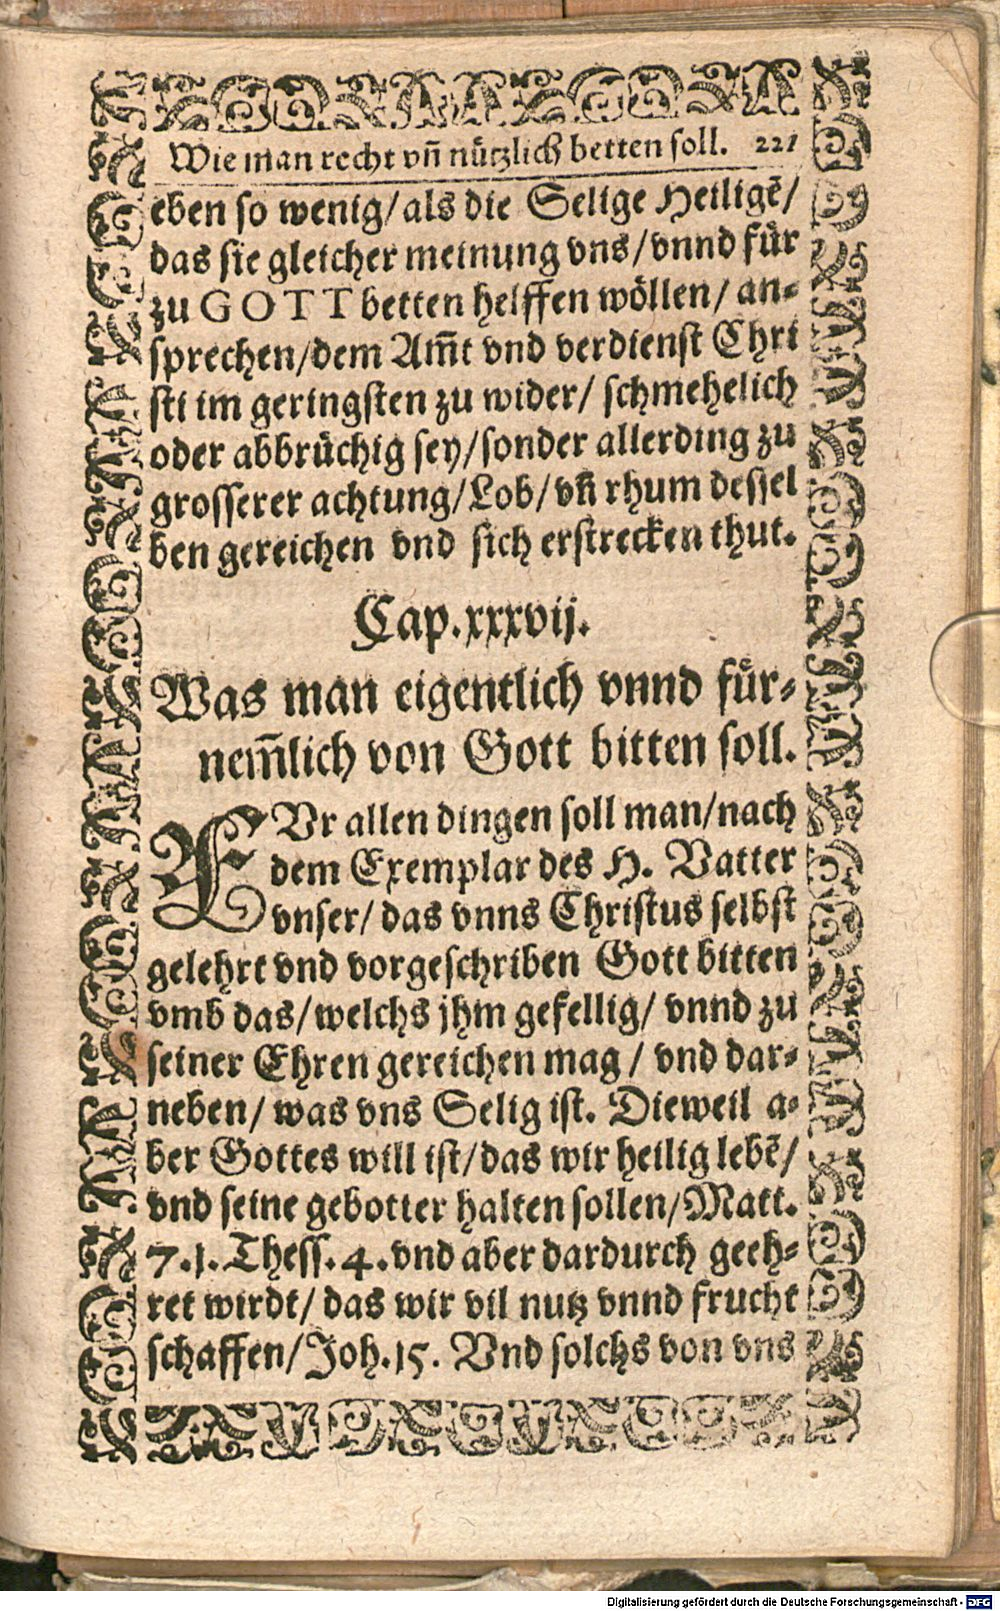 Wie man recht vñ nützlich betten soll. 221
eben so wenig/als die Selige Heiligē/
das sie gleicher meinung vns/vnnd für
zu GOTT betten helffen wöllen/ an-
sprechen/dem Am̃t vnd verdienst Chri
sti im geringsten zu wider/ schmehelich
oder abbrüchig sey/sonder allerding zu
grosserer achtung/Lob/vñ rhum dessel
ben gereichen vnd sich erstrecken thut.
Cap.xxxvij.
Was man eigentlich vnnd für-
nem̃lich von Gott bitten soll.
FVr allen dingen soll man/nach
dem Exemplar des H. Vatter
vnser/ das vnns Christus selbst
gelehrt vnd vorgeschriben Gott bitten
vmb das/welchs jhm gefellig/ vnnd zu
seiner Ehren gereichen mag/ vnd dar-
neben/ was vns Selig ist. Dieweil a-
ber Gottes will ist/das wir heilig lebē/
vnd seine gebotter halten sollen/Matt.
7.1.Thess.4.vnd aber dardurch geeh-
ret wirdt/ das wir vil nutz vnnd frucht
schaffen/Joh.15. Vnd solchs von vns
Digitalisierung gefördert durch die Deutsche Forschungsgemeinschaft - DFG